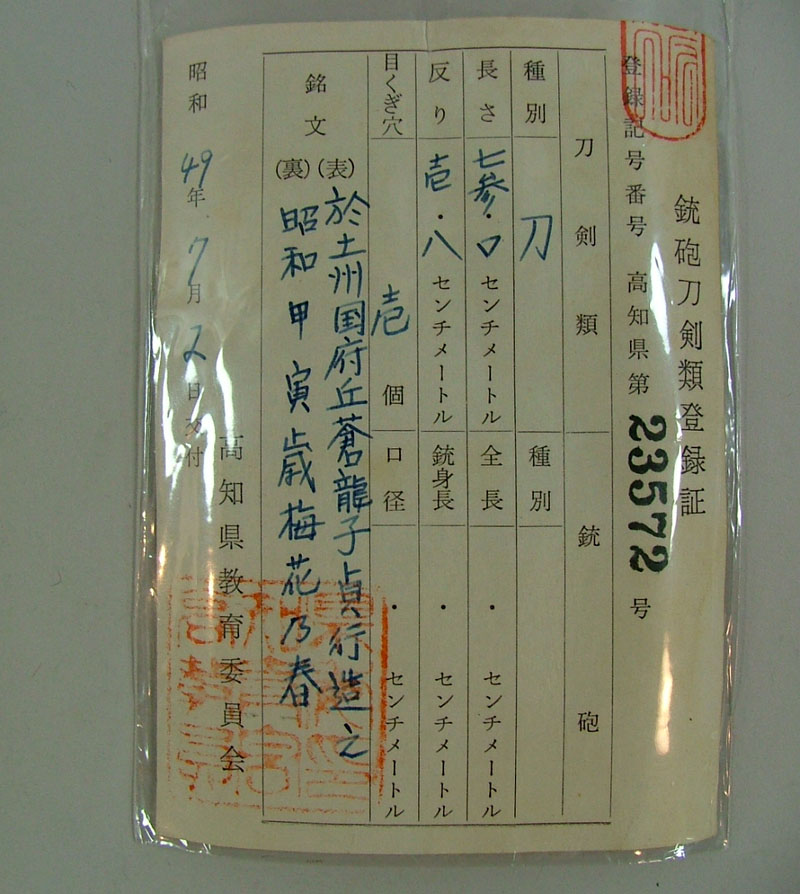 銃砲刀剣類登録証
登録記号番号 高知県第 23572 号
刀剣類 銃砲
種別 刀 種別
長さ 七参・〇 センチメートル 全長 ・ センチメートル
反り 壱・八 センチメートル 銃身長 ・ センチメートル
目くぎ穴 壱 個 口径 ・ センチメートル
銘文 (表) 於土州国府丘蒼龍子貞行造之
(裏) 昭和甲寅歳梅花乃春
昭和 49年 7月 2日交付
高知県教育委員会